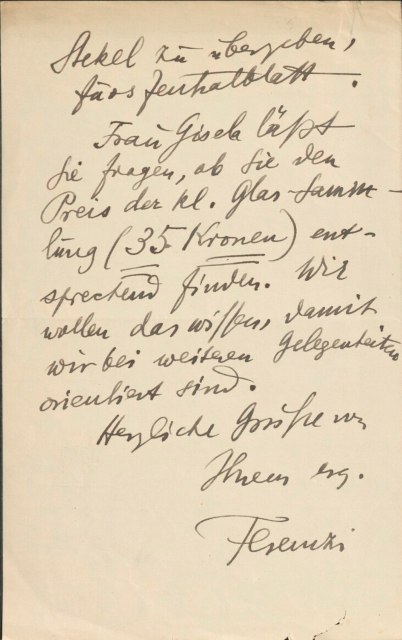 Stekel zu übergeben,
fürs Zentralblatt.
Frau Gisela läßt
Sie fragen, ob Sie den
Preis der kl. Glas-Samm-
lung (35 Kronen) ent-
sprechend finden. Wir
wollen das wissen, damit
wir bei weiteren Gelegenheiten
orientiert sind.
Herzliche Grüße von
Ihrem erg.
Ferenczi